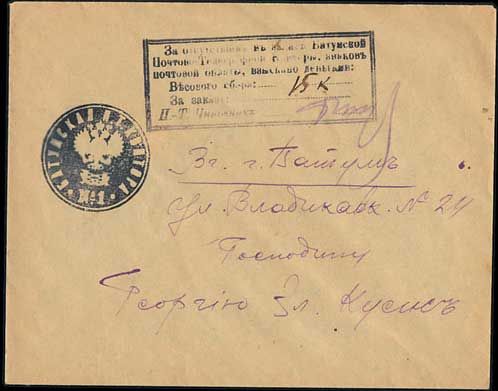 За отсутствіемъ въ запасѣ Батумской
Почтово-Телеграфной Конторы, знаковъ
почтовой оплаты, взыскано деньгами:
Вѣсового сбора: 15 к
За заказъ:
П.-Т. Чиновникъ
№ 1
Въ г. Батумъ
ул. Владикавк. № 24
Господину
Георгію Эл.